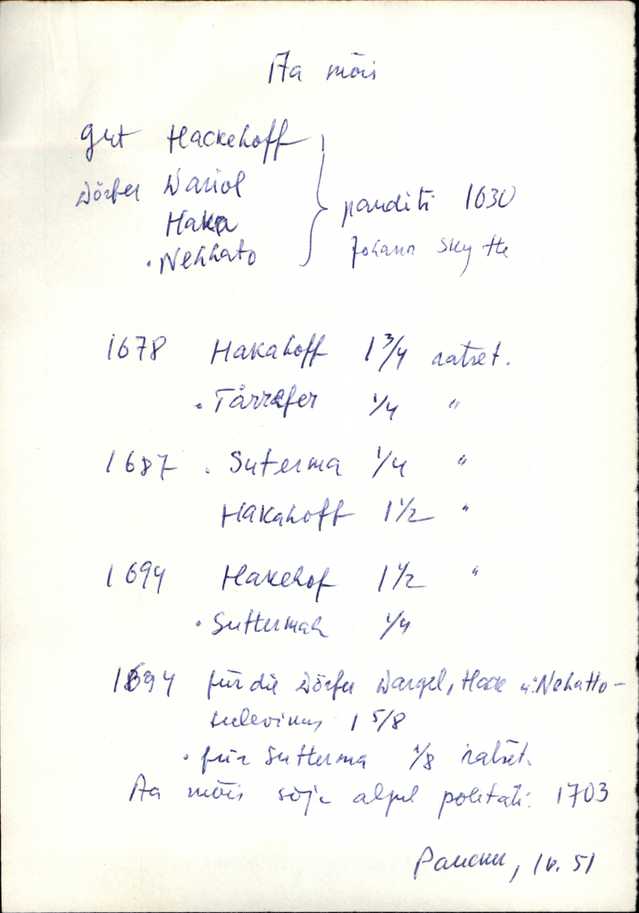 Aa mõis
Gut Hackehoff
Dörfer Wariol
Haka
. Nehhato
panditi 1630
Johann Skytte
1678 Hakahoff 1 3/4 ratset.
. Tårrefer 1/4 "
1687 . Suterma 1/4 "
Hakahoff 1 1/2 "
1694 Hakehof 1 1/2 "
. Suttermah 1/4
1694 für die Dörfer Wargel, Hacke u. Nehatto-
1 5/8
. für Sutterma 1/8 ratset.
Aa mõis sõja algul põletati 1703
lk. 51